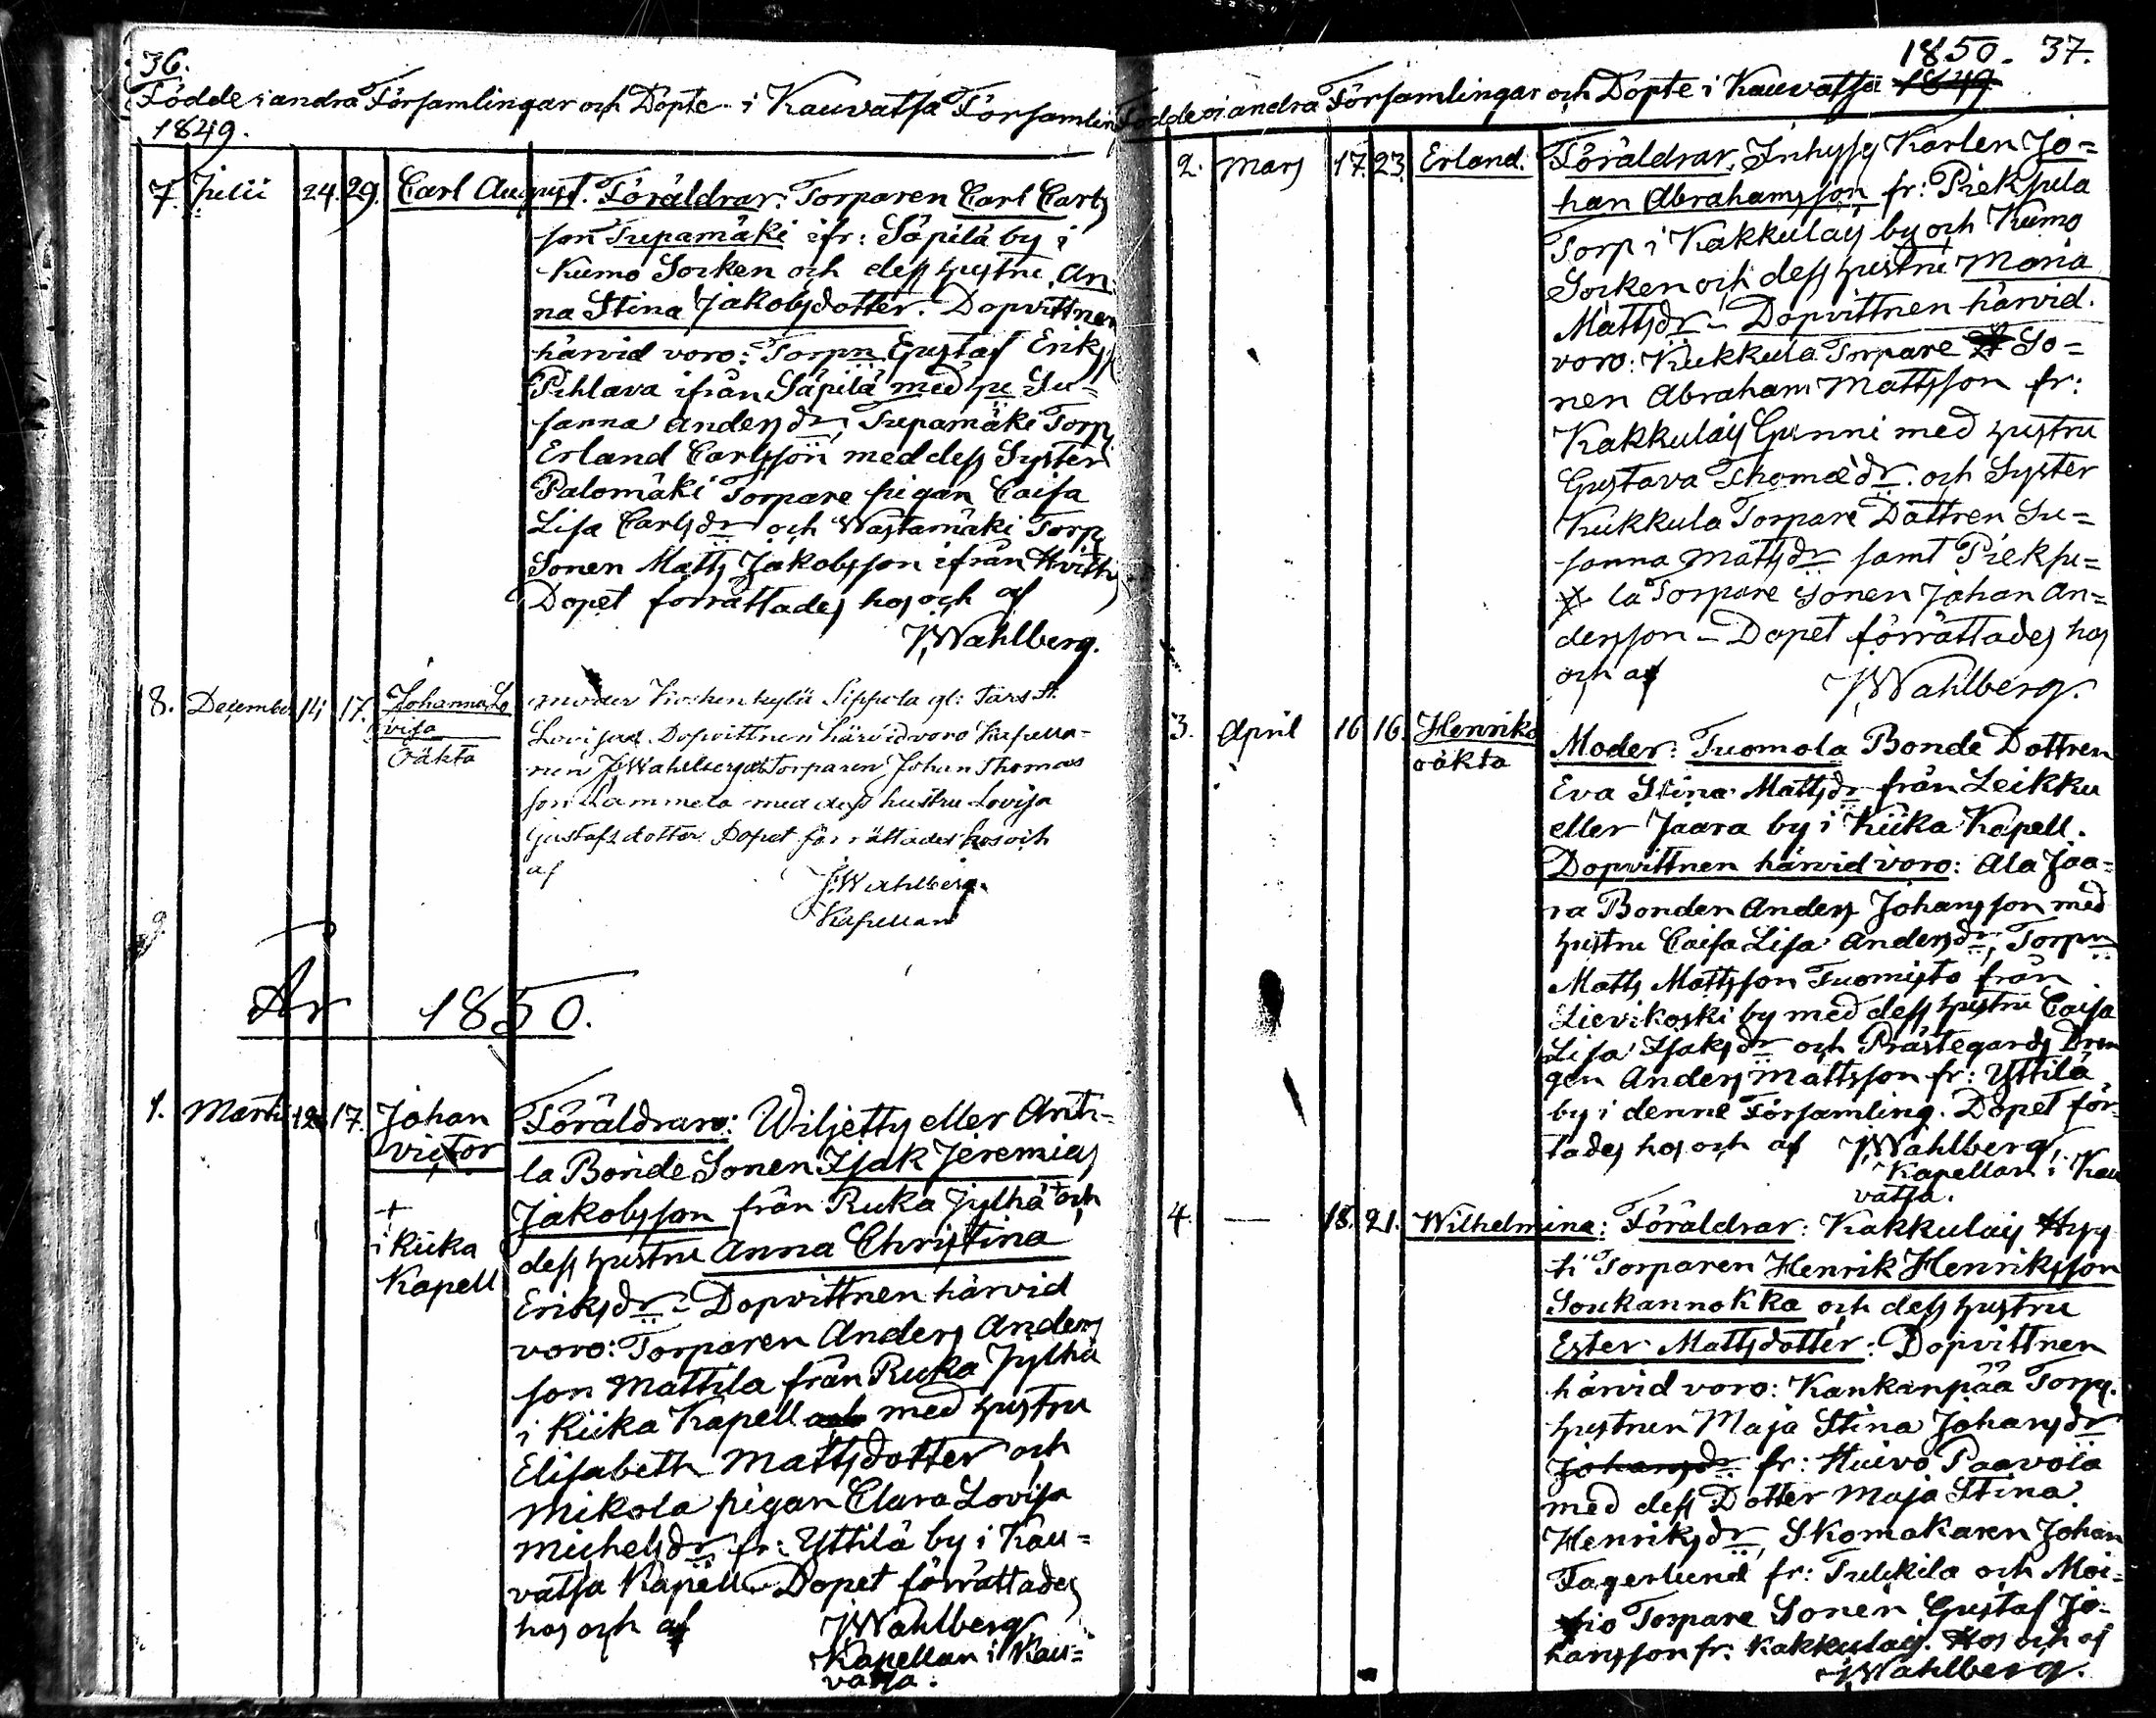 36.
Födde i andra Församlingar och Döpte i Kauvatsa Församlin
1849.
7. Julii 24. 29. Carl August. Föräldrar: Torparen Carl Carls
son Trepamäki ifr: Säpilä by i
Kumo Socken och dess hustru An-
na Stina Jakobsdotter. Dopvittnen
härvid voro: Torpn Gustaf Eriks
Pihlava ifrån Säpilä med hu Su=
sanna Andersdr, Trepamäki Torp
Erland Carlsson med dess Syster
Palomäki Torpare pigan Caisa
Lisa Carlsdr och Wastamäki Torp
Sonen Matts Jakobsson ifrån Hvittis
Dopet förrättades hos och af
J Wahlberg.
8. December 14 17. Johanna Lo
visa
Oäkta
moder Sippola
Lovisa. Dopvittnen härvid voro Kapella-
nen J Wahlberg Torparen Johan Thomas
son Lammela med dess hustru Lovisa
Gustafsdotter Dopet förrättades hos och
af
J. Wahlberg.
Kapellan
9
År 1850.
1. Martii 12 17. Johan
Victor
+
i Kiika
Kapell
Föräldrar: Wiljetty eller Antt-
la Bonde Sonen Isak Jeremias
Jakobsson från Ruka Jylhä och
dess hustru Anna Christina
Eriksdr - Dopvittnen härvid
voro: Torparen Anders Anders
son Mattila från Ruka Jylhä
i Kiika Kapell och med hustru
Elisabeth Mattsdotter och
Mikola pigan Clara Lovisa
Michelsdr fr: Yttilä by i Kau=
vatsa Kapell. Dopet förrättades
hos och af J Wahlberg
Kapellan i Kau=
vatsa.
1850. 37.
Födde i andra Församlingar och Döpte i Kauvatsa 1849
2. Mars 17. 23. Erland. Föräldrar: Inhyses Karlen Jo=
han Abrahamsson fr: Pieksula
Torp i Kakkulais by och Kumo
Socken och dess hustru Maria
Mattsdr - Dopvittnen härvid
voro: Kukkula Torpare So=
nen Abraham Mattsson fr:
Kakkulais Gunni med hustru
Gustava Thomædr. och Syster
Kukkula Torpare Dottren Su=
sanna Mattsdr samt Pieksu=
la Torpare Sonen Johan An=
dersson - Dopet förrättades hos
och af J Wahlberg.
3. April 16 16. Henrika
oäkta
Moder: Tuomola Bonde Dottren
Eva Stina Mattsdr från Leikku
eller Jaara by i Kiika Kapell.
Dopvittnen härvid voro: Ala Jaa-
ra Bonden Anders Johansson med
hustru Caisa Lisa Andersdr, Torpn
Matts Mattsson Tuomisto från
Lievikoski by med dess hustru Caisa
Lisa Isaksdr och Prästegårds Drän
gen Anders Mattsson fr: Yttilä
by i denne Församling. Dopet för-
tades hos och af J Wahlberg
Kapellan i Kau
vatsa.
4. — 18. 21. Wilhelmina: Föräldrar: Kakkulais Hyy
ti Torparen Henrik Henriksson
Soukannokka och dess hustru
Ester Mattsdotter: Dopvittnen
härvid voro: Kankanpää Torp.
hustrun Maja Stina Johansdr
Johansdr fr: Huivo Paavola
med dess Dotter Maja Stina
Henriksdr, Skomakaren Johan
Fagerlund fr: Tulkkila och Moi-
sio Torpare Sonen Gustaf Jo-
hansson fr: Kakkulais. Hos och af
J Wahlberg.